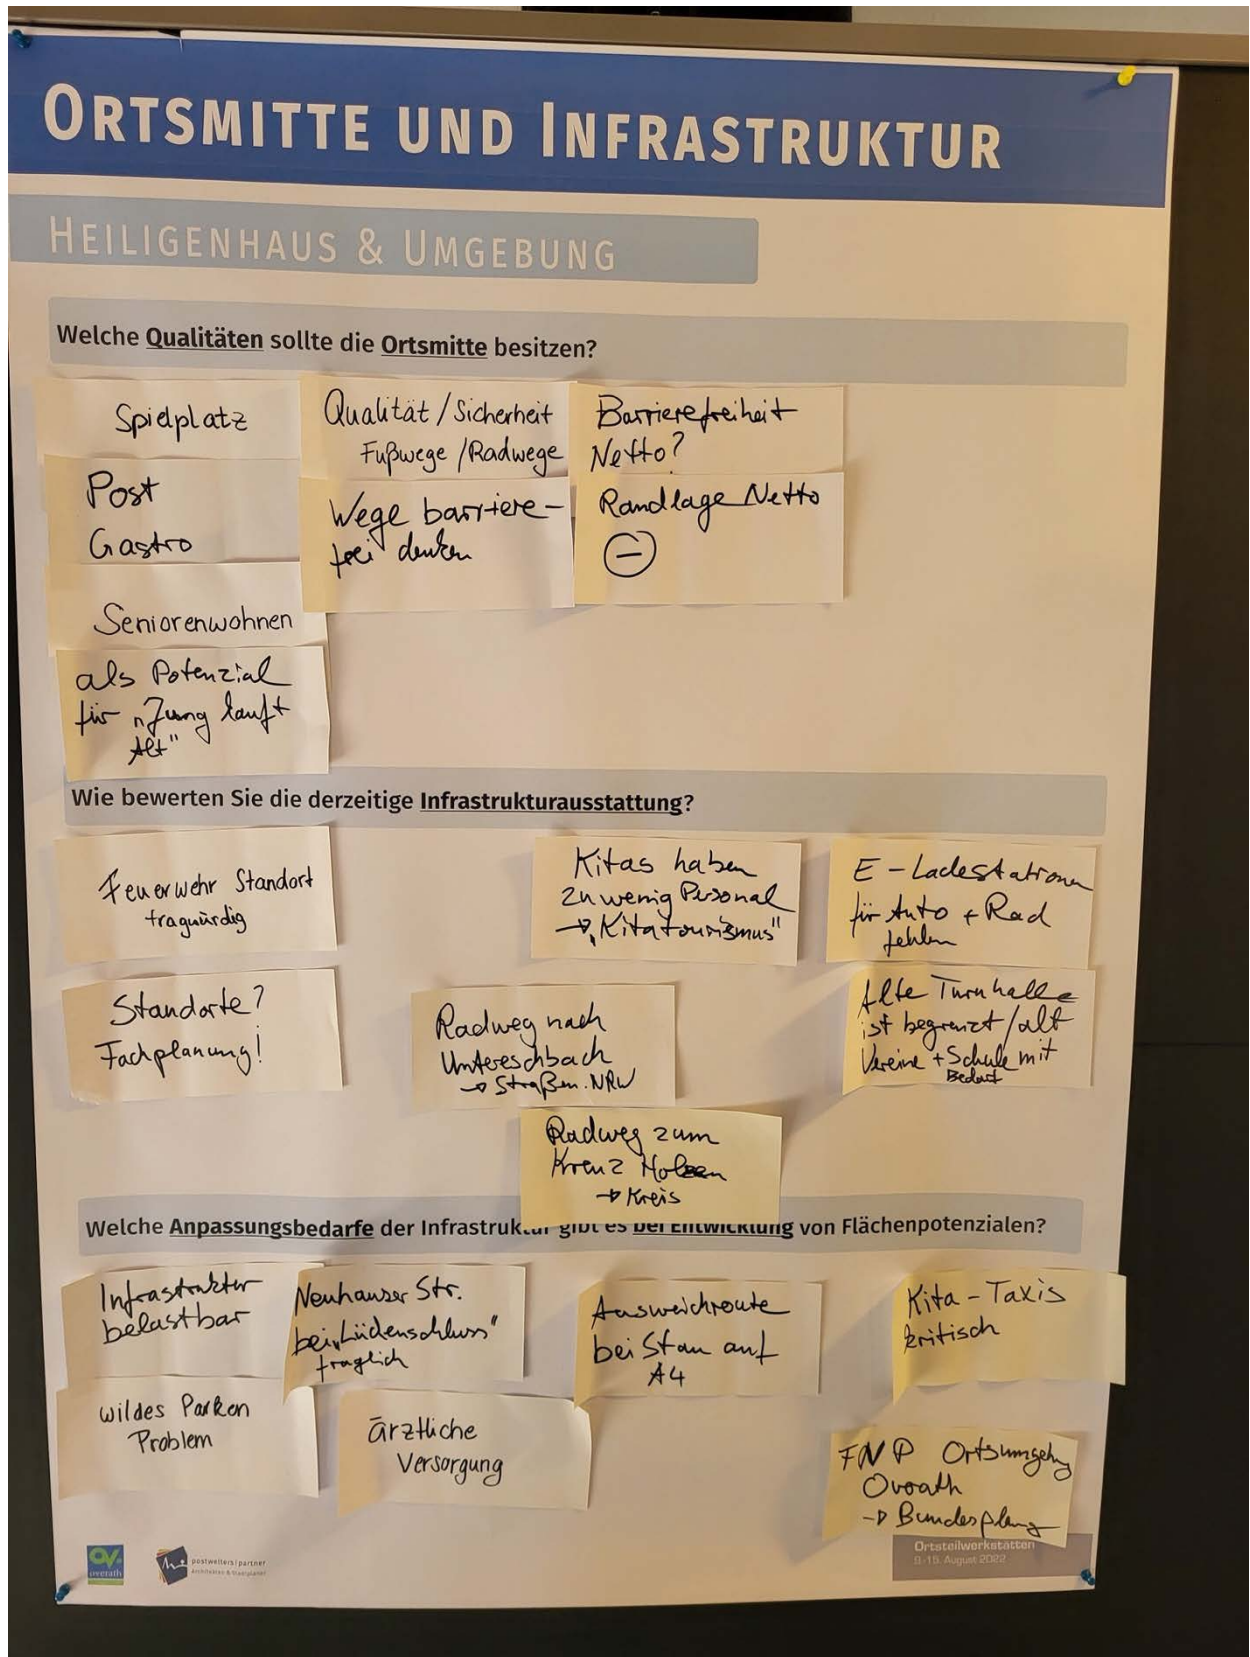 ORTSMITTE UND INFRASTRUKTUR
HEILIGENHAUS & UMGEBUNG
Welche Qualitäten sollte die Ortsmitte besitzen?
Spielplatz
Post
Gastro
Seniorenwohnen
als Potenzial
für „Jung kauft
Alt"
Qualität / Sicherheit
Fußwege / Radwege
Wege barriere-
frei denken
Barrierefreiheit
Netto?
Randlage Netto
(-)
Wie bewerten Sie die derzeitige Infrastrukturausstattung?
Feuerwehr Standort
fragwürdig
Standorte?
Fachplanung!
Kitas haben
zu wenig Personal
→ „Kitatourismus"
E-Ladestationen
für Auto + Rad
fehlen
Radweg nach
Untereschbach
→ Straßen.NRW
Alte Turnhalle
ist begrenzt / alt
Vereine + Schule mit
Bedarf
Radweg zum
Kreuz
→ Kreis
Welche Anpassungsbedarfe der Infrastruktur gibt es bei Entwicklung von Flächenpotenzialen?
Infrastruktur
belastbar
Neuhauser Str.
bei „Lückenschluss"
fraglich
Ausweichroute
bei Stau auf
A4
Kita-Taxis
kritisch
wildes Parken
Problem
ärztliche
Versorgung
FNP Ortsumgehung
Overath
→ Bundesplanung
OV.
overath
postwelters | partner
Architekten & Stadtplaner
Ortsteilwerkstätten
9.-15. August 2022